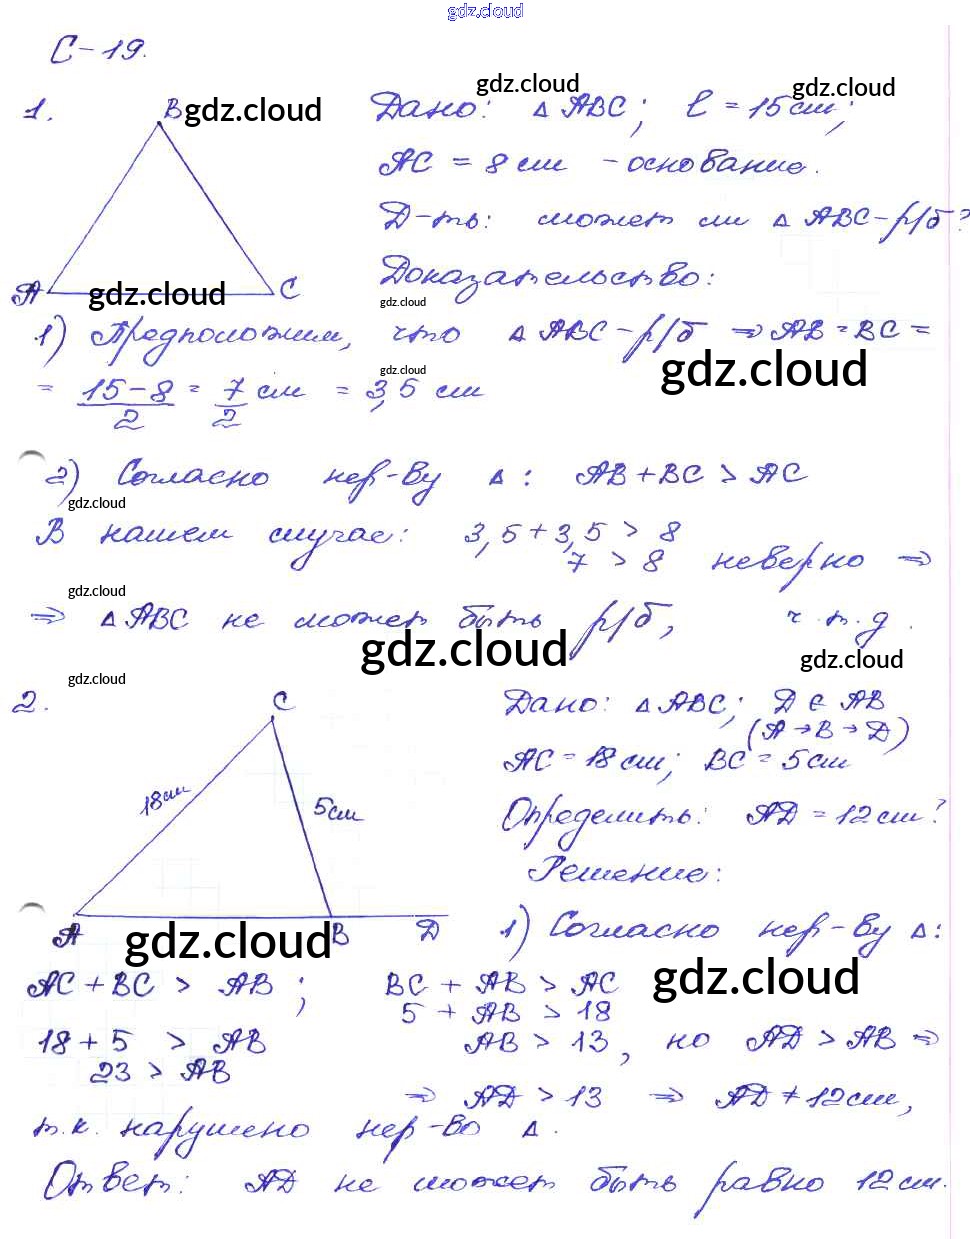 gdz.cloud
С-19.
1.
B gdz.cloud
gdz.cloud
gdz.cloud
Дано: △ ABC; l = 15 см;
AC = 8 см - основание.
Д-ть: может ли △ ABC - р/б?
Доказательство:
A gdz.cloud C
gdz.cloud
1) Предположим, что △ ABC - р/б ⇒ AB = BC =
gdz.cloud
= (15-8)/2 = 7/2 см = 3,5 см
2) Согласно нер-ву △: AB + BC > AC
gdz.cloud
В нашем случае: 3,5 + 3,5 > 8
7 > 8 неверно ⇒
gdz.cloud
⇒ △ ABC не может быть р/б, ч.т.д.
gdz.cloud
gdz.cloud
gdz.cloud
2.
C
18см
5см
A gdz.cloud B D
Дано: △ ABC; D ∈ AB
(A → B → D)
AC = 18 см; BC = 5 см
Определить: AD = 12 см?
Решение:
1) Согласно нер-ву △:
gdz.cloud
AC + BC > AB; BC + AB > AC
5 + AB > 18
18 + 5 > AB AB > 13, но AD > AB ⇒
23 > AB
⇒ AD > 13 ⇒ AD ≠ 12 см,
т.к. нарушено нер-во △.
Ответ: AD не может быть равно 12 см.